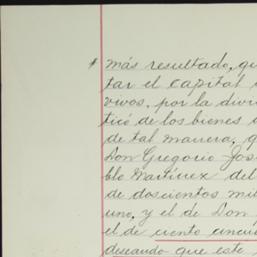 más resultado, qu
tar el capital
vivos, por la divi
ticó de los bienes
de tal manera, q
Don Gregorio Jos
blo Martínez del
de doscientos mil
uno, y el de Don
el de ciento cincu
deseando que este